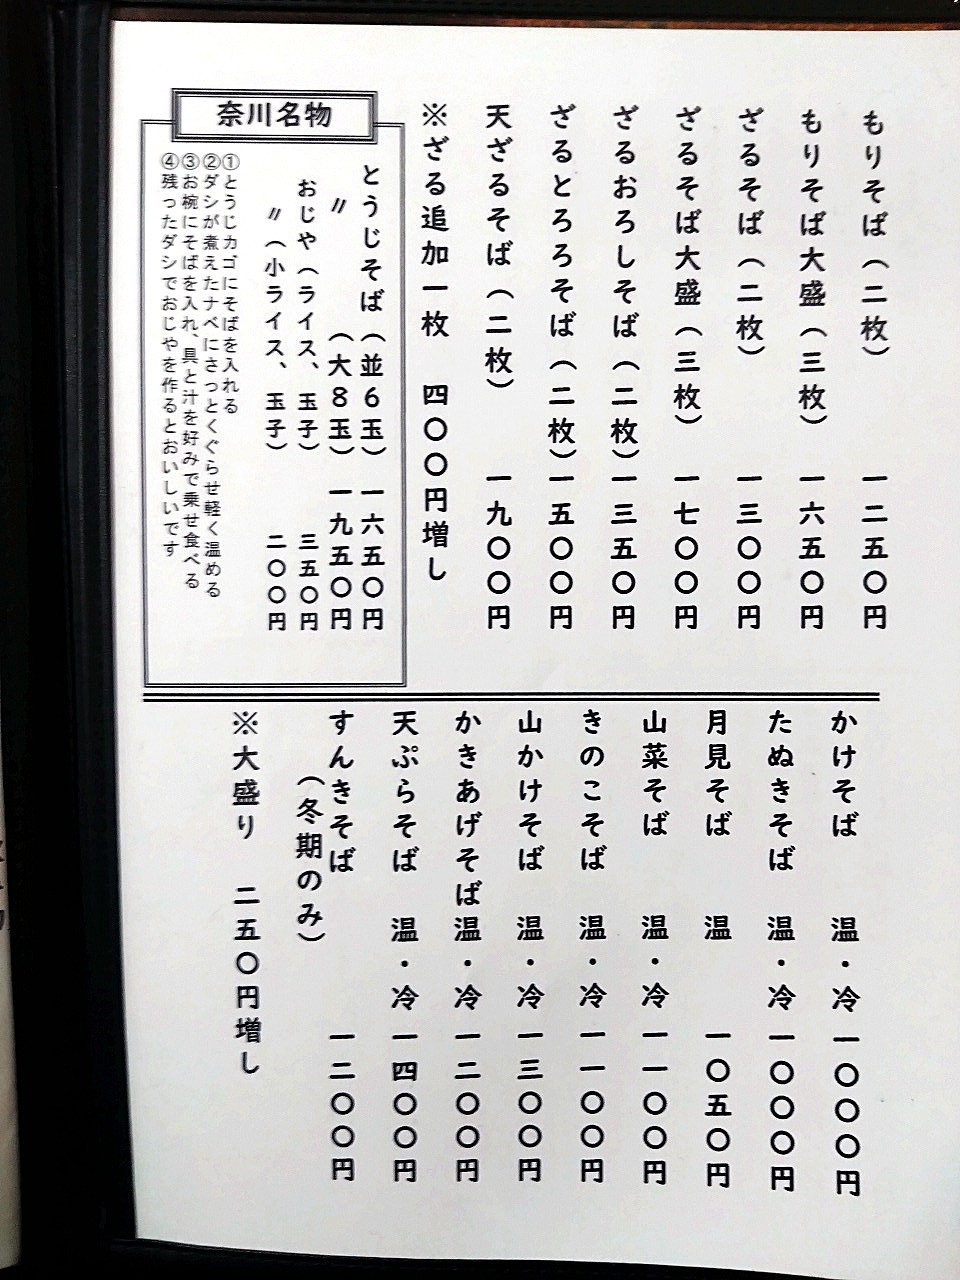 もりそば（二枚）　一二五〇円
もりそば大盛（三枚）　一六五〇円
ざるそば（二枚）　一三〇〇円
ざるそば大盛（三枚）　一七〇〇円
ざるおろしそば（二枚）一三五〇円
ざるとろろそば（二枚）一五〇〇円
天ざるそば（二枚）　一九〇〇円
※ざる追加一枚　四〇〇円増し
奈川名物
とうじそば（並６玉）一六五〇円
〃　（大８玉）一九五〇円
おじや（ライス、玉子）　三五〇円
〃（小ライス、玉子）　二〇〇円
①とうじカゴにそばを入れる
②ダシが煮えたナベにさっとくぐらせ軽く温める
③お椀にそばを入れ、具と汁を好みで乗せ食べる
④残ったダシでおじやを作るとおいしいです
かけそば　温・冷　一〇〇〇円
たぬきそば　温・冷　一〇〇〇円
月見そば　温　一〇五〇円
山菜そば　温・冷　一一〇〇円
きのこそば　温・冷　一一〇〇円
山かけそば　温・冷　一三〇〇円
かきあげそば温・冷　一二〇〇円
天ぷらそば　温・冷　一四〇〇円
すんきそば　一二〇〇円
（冬期のみ）
※大盛り　二五〇円増し